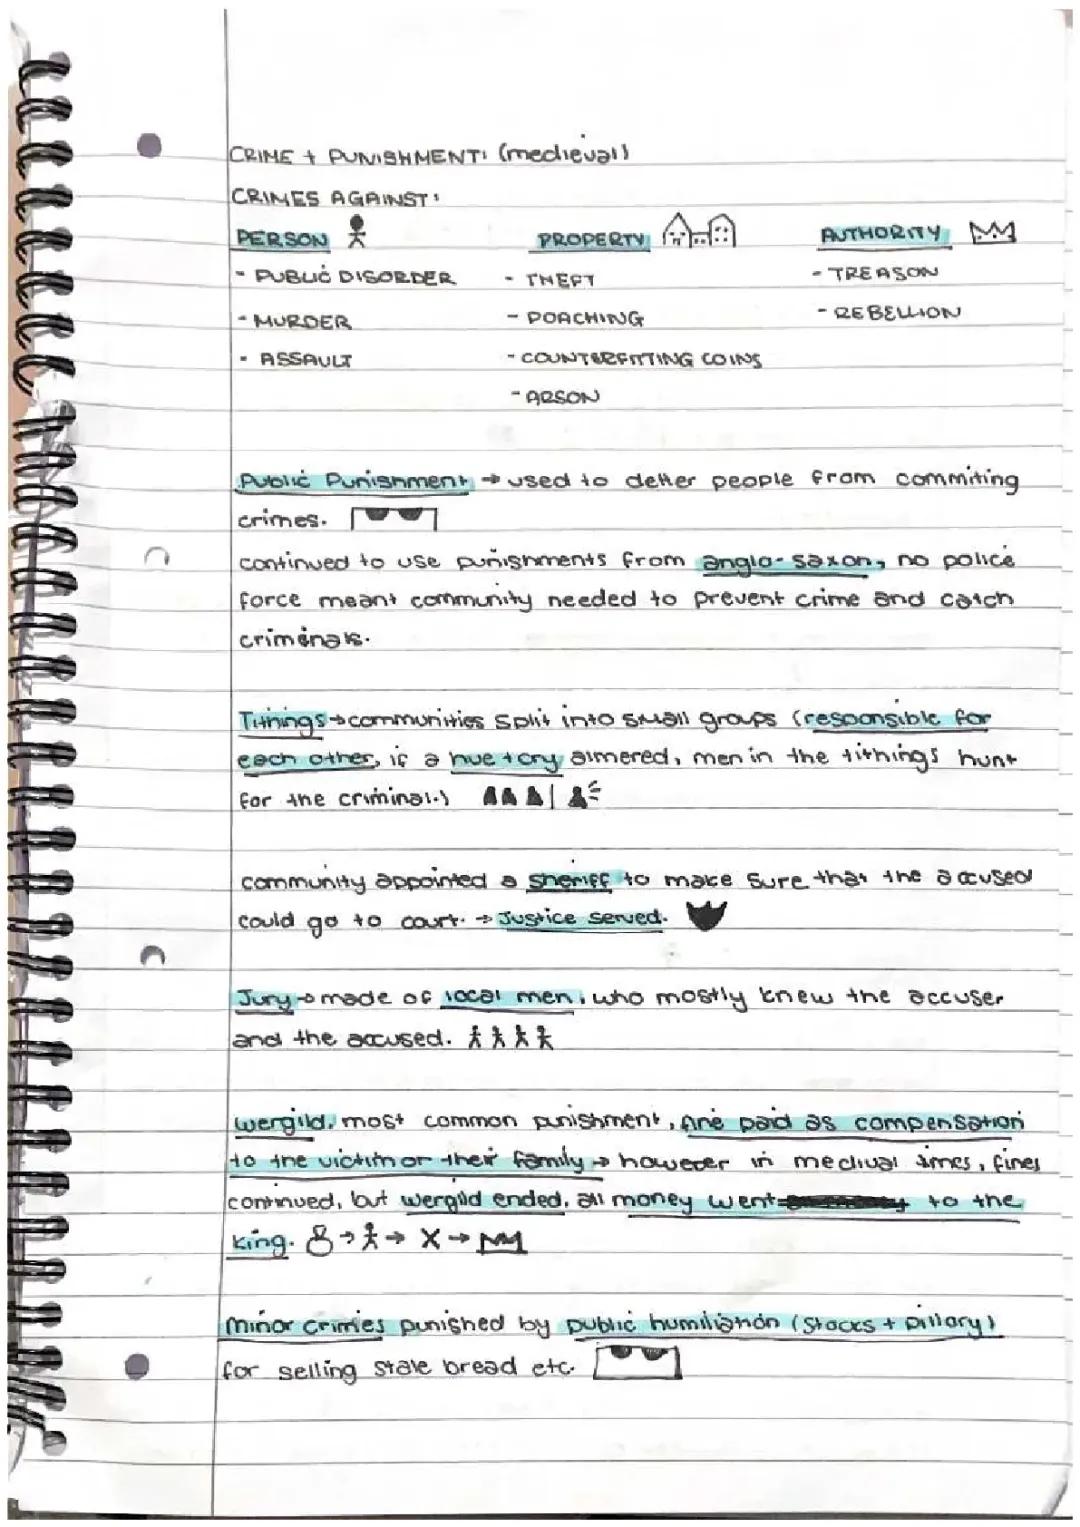 CRIME + PUNISHMENT: (medieval)
CRIMES AGAINST:
PERSON PROPERTY AUTHORITY
- PUBLIC DISORDER - THEFT - TREASON
- MURDER - POACHING - REBELLION
- ASSAULT - COUNTERFITTING COINS
- ARSON
Public Punishment → used to detter people from commiting
crimes.
continued to use punishments from anglo-saxon, no police
force meant community needed to prevent crime and catch
criminals.
Tithings → communities split into small groups (responsible for
each other, if a hue + cry, men in the tithings hunt
for the criminal.)
community appointed a sheriff to make sure that the accused
could go to court. → Justice served.
Jury → made of local men, who mostly knew the accuser
and the accused.
wergild, most common punishment, fine paid as compensation
to the victim or their family → however in medival times, fines
continued, but wergild ended, all money went to the
king. → → X →
minor crimes punished by public humiliation (stocks + pillory)
for selling stale bread etc.